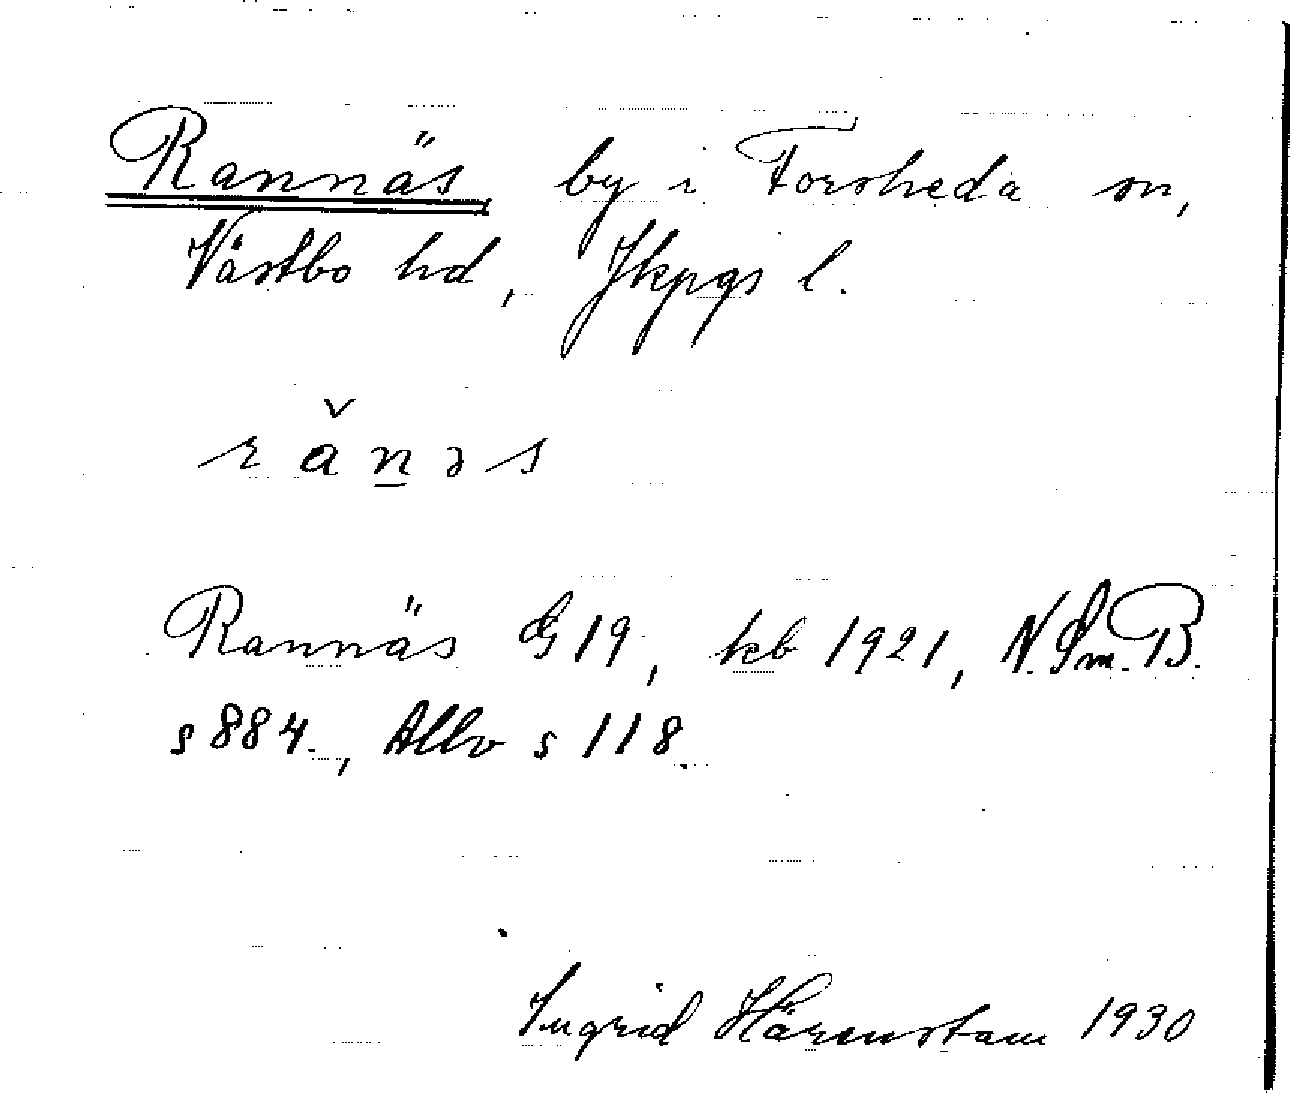 Rannäs by i Forsheda sn,
Västbo hd, Jkpgs l.
r ǎ n̲ ə s
Rannäs G 19, kb 1921, N. Sm. B.
s 884., Allv s 118.
Ingrid Härenstam 1930